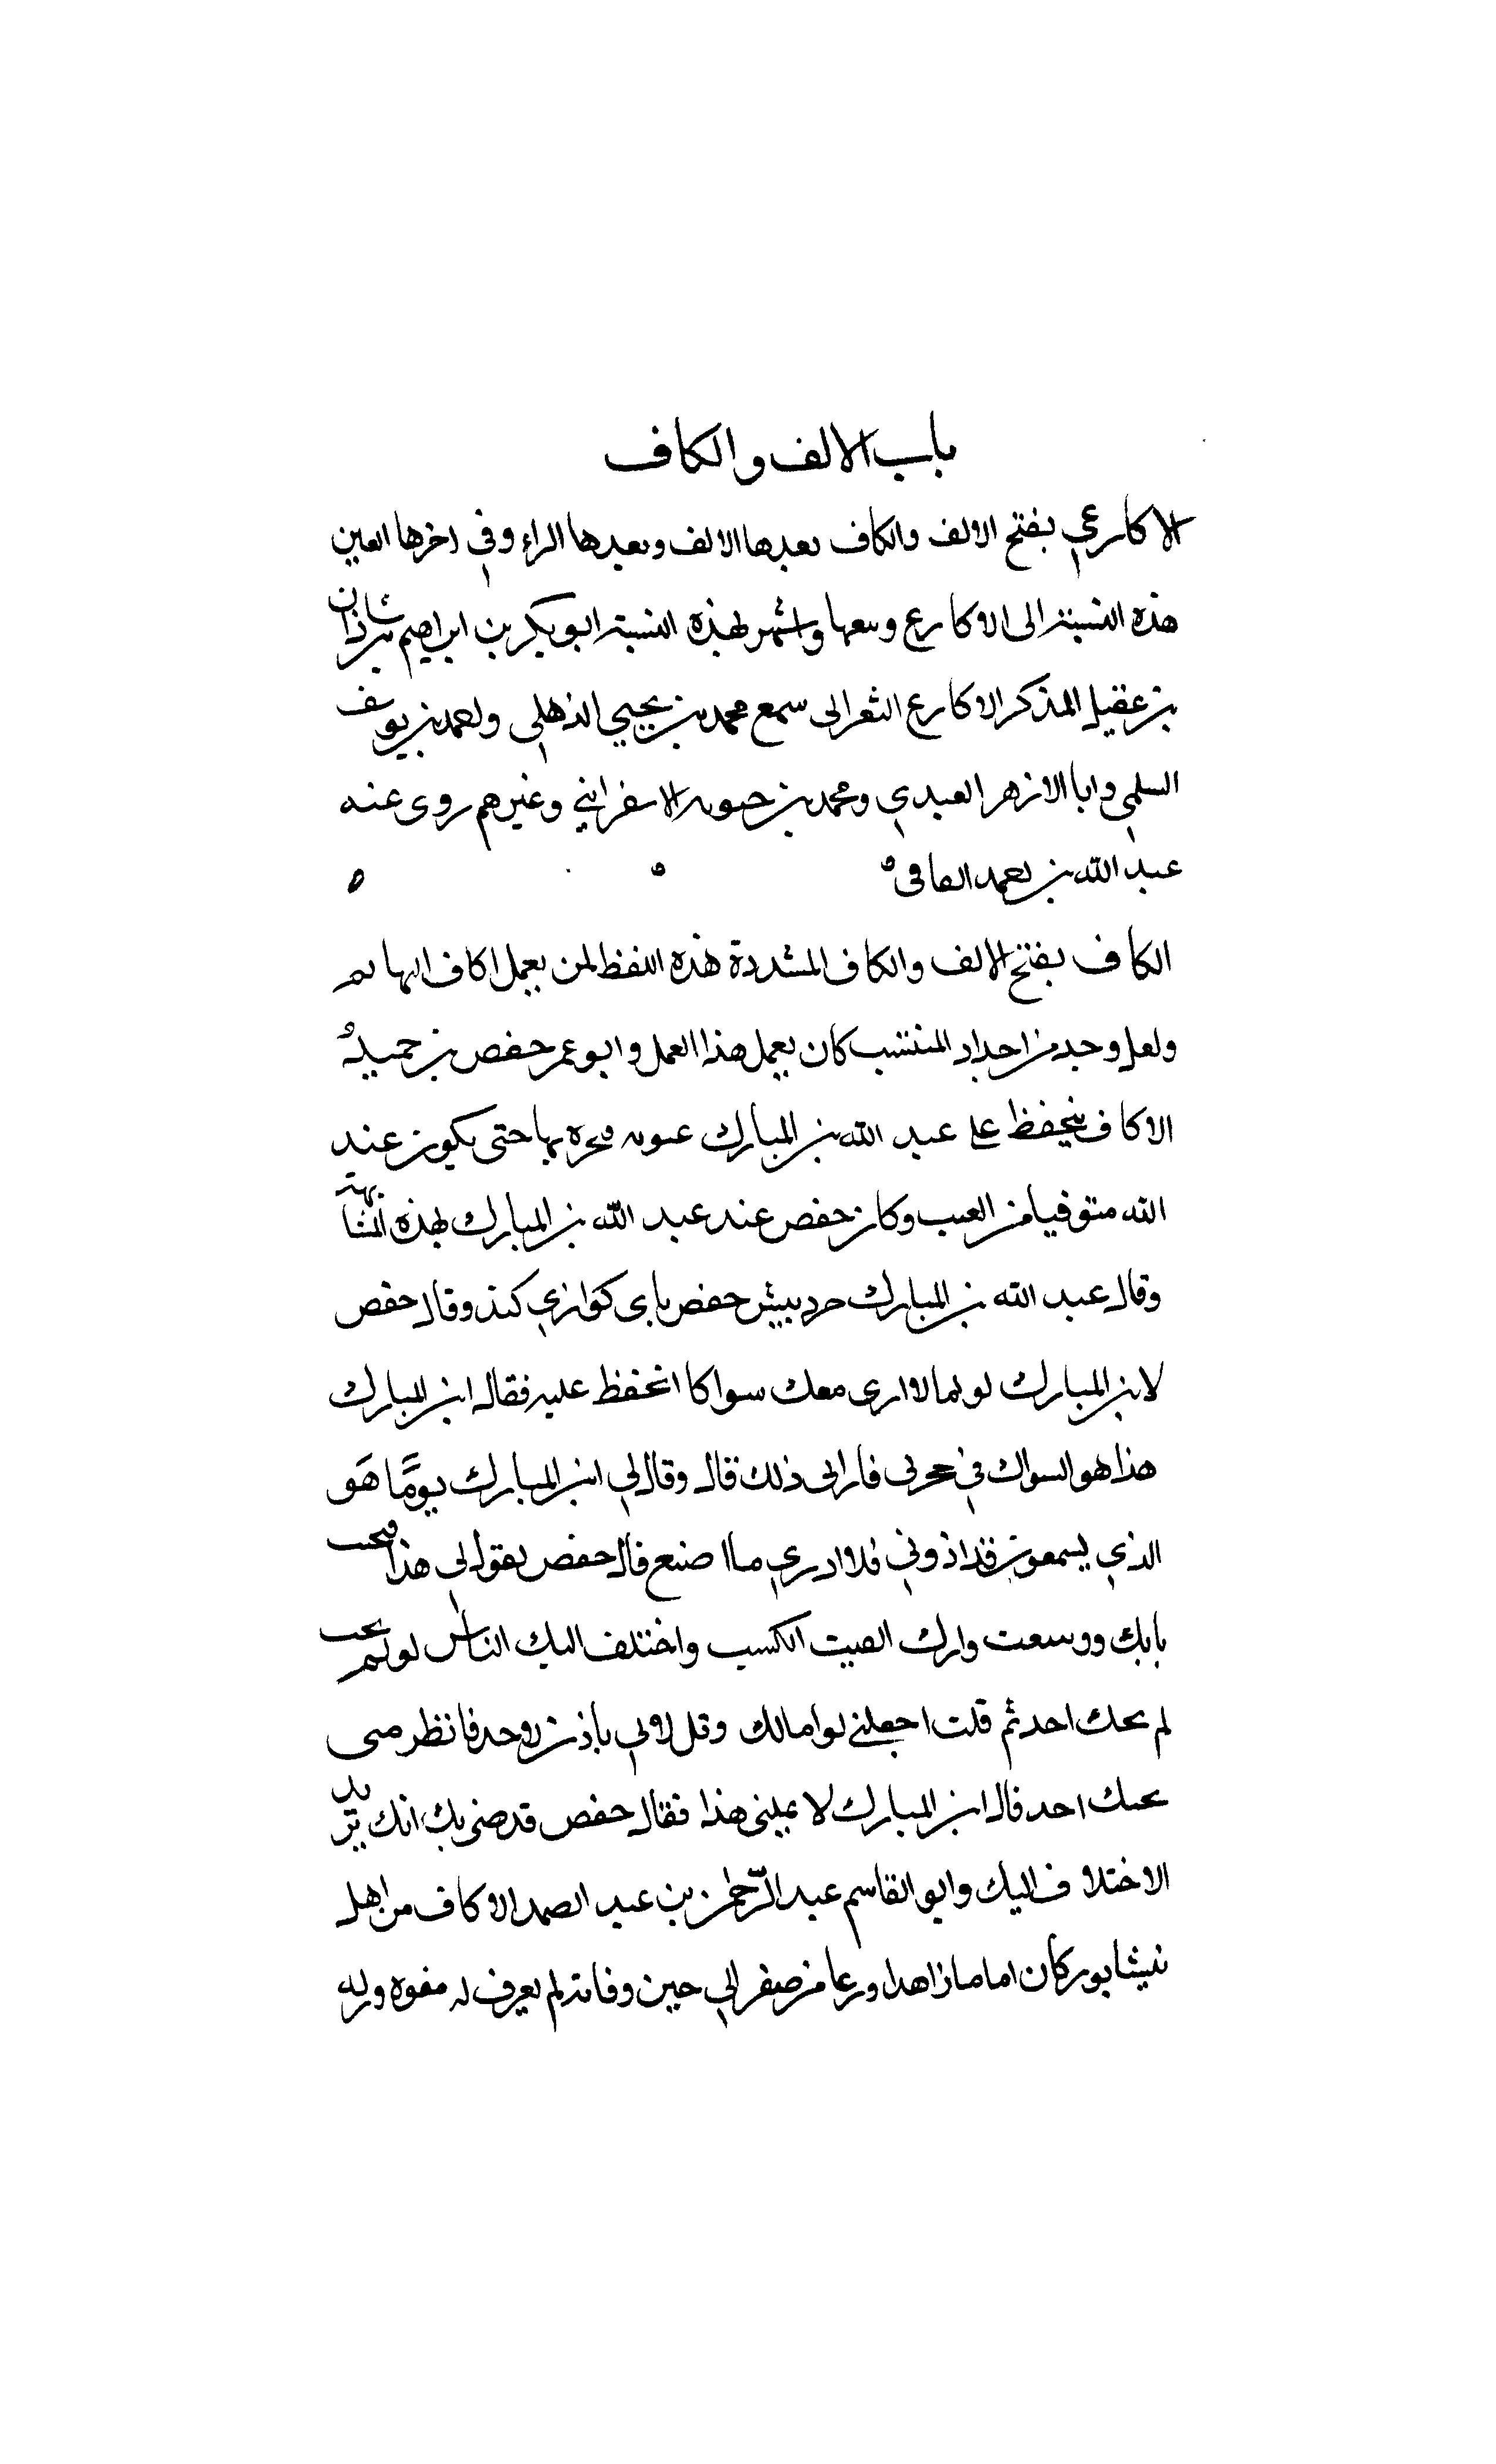 باب الالف والكاف
الاكارعي بفتح الالف والكاف بعدها الالف وبعدها الراء وفي اخرها العين
هذه النسبة الى الاكارع وبيعها واشتهر لهذه النسبة ابو بكر بن ابراهيم بن شاذان
بن عقيل المذكر الاكارع سمع محمد بن يحيي الذهلي واحمد بن يوسف
السلمي وابا الازهر العبدي ومحمد بن حيويه الاسفرايني وغيرهم روى عنه
عبد الله بن احمد
الكاف بفتح الالف والكاف المشددة هذه اللفظ لمن يعمل اكاف البهائم
ولعل وحد من اجداد المنتسب كان يعمل هذا العمل وابو عمر حفص بن حميد
الاكاف يتحفظ على عبد الله بن المبارك عيوبه بها حتى يكون عند
الله متوفيا من العيب وكان حفص عند عبد الله بن المبارك لهذه المثابة
وقال عبد الله بن المبارك بيش حفص كند وقال حفص
لابن المبارك لو لما لا ارى معك سواكا اتحفظ عليه فقال ابن المبارك
هذا هو السواك في حجرتي فاراني ذلك قال وقال لي ابن المبارك يومًا هَو
الذي يسمعون قد اذوني فلا ادري ما اصنع قال حفص يقول لي هذا
بابك ووسعت وارك الكسب واختلف اليك الناس لو لم
لم احد ثم قلت اجعلني وقل لا باذن لاحد فانظر متى
احد قال ابن المبارك لا يمكنني هذا فقال حفص قد انك تريد
الاختلاف اليك وابو القاسم عبد الرّحمن بن عبد الصمد الاكاف من اهل
نيشابور كان اماما زاهدا ورعا من صغر الي حين وفاته لم يعرف له هفوه وله